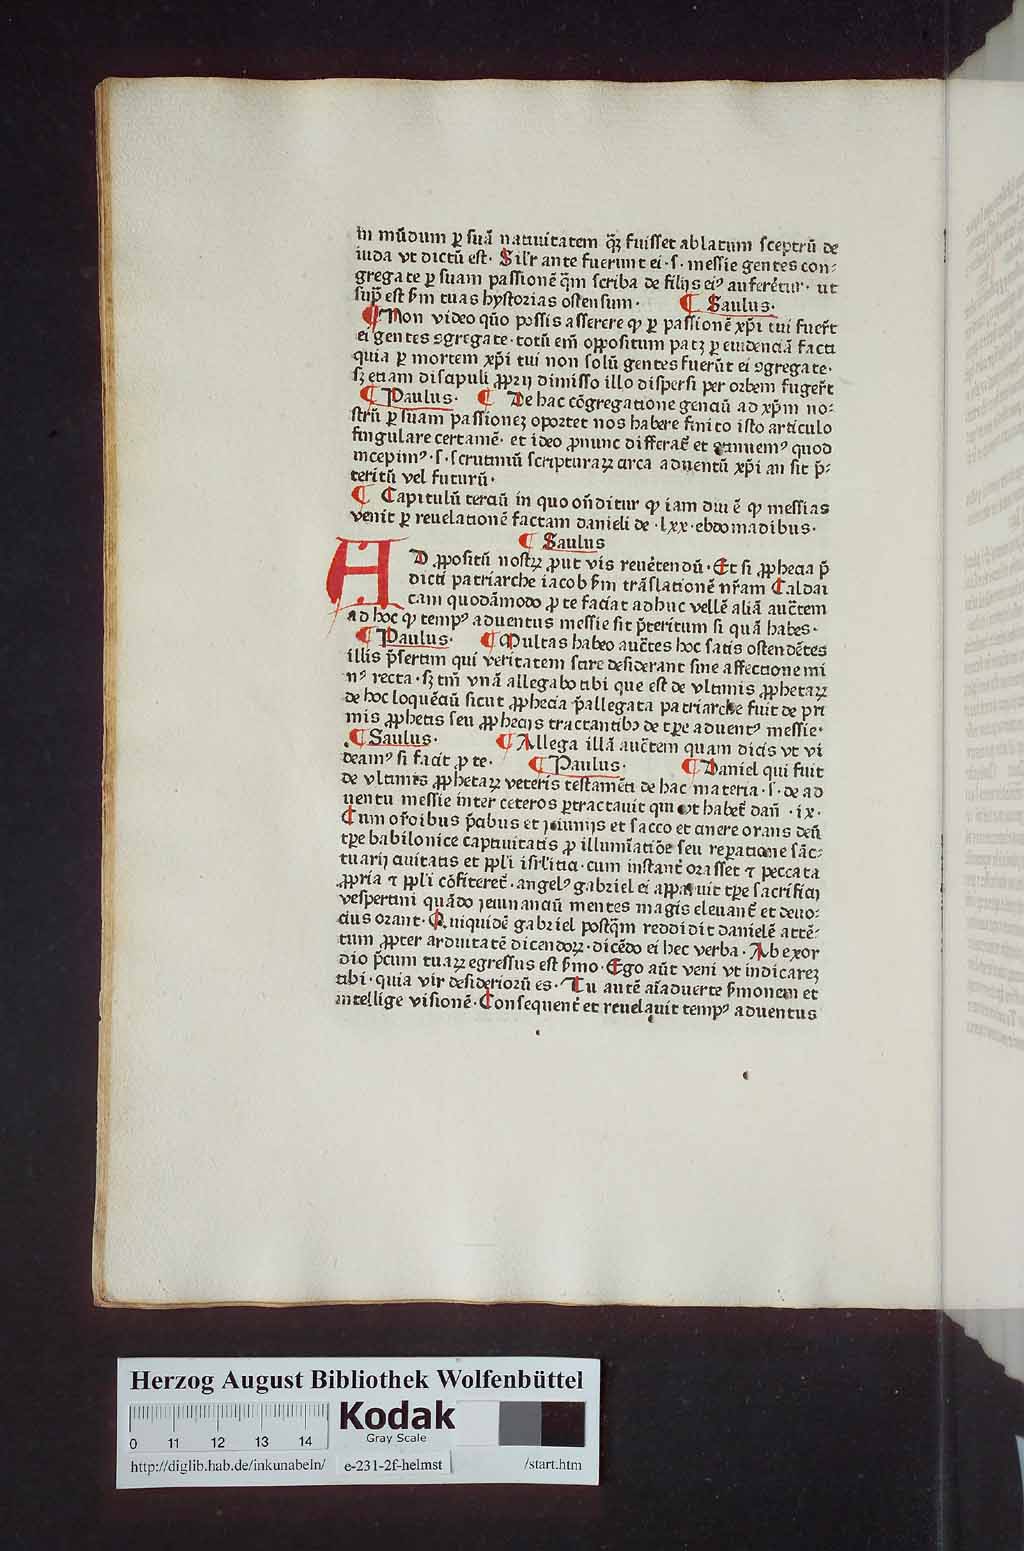 in mūdum ꝑ suā natiuitatem qꝫ fuisset ablatum sceptrū de
iuda vt dictū est· Sil'r ante fuerunt ei ·s· messie gentes con-
gregate ꝑ suam passionē q̄m scriba de filijs eiꝰ auferētur· ut
sup̄ est ẜm tuas hystorias ostensum· ¶ Saulus·
¶ Non video qūo possis asserere ꝙ ꝑ passionē xp̄i tui fuer̄t
ei gentes ꝯgregate· totū em̄ oppositum patꝫ ꝑ euidenciā facti
quia ꝑ mortem xp̄i tui non solū gentes fuerūt ei ꝯgregate·
sꝫ etiam discipuli ꝓprij dimisso illo dispersi per orbem fuger̄t
¶ Paulus· ¶ De hac cōgregatione genciū ad xp̄m no-
strū ꝑ suam passionez oportet nos habere finito isto articulo
singulare certamē· et ideo ꝓnunc differat̄ et ꝯtinuemꝰ quod
incepimꝰ ·s· scrutiniū scripturaꝝ circa aduentū xp̄i an sit p̄-
teritū vel futurū·
¶ Capitulū terciū in quo on̄ditur ꝙ iam diu ē ꝙ messias
venit ꝑ reuelationē factam danieli de ·lxx· ebdomadibus·
¶ Saulus
AD ꝓpositū nostꝝ ꝓut vis reuētendū· Et si ꝓphecia p̄
dicti patriarche iacob ẜm trāslationē nr̄am Caldai
cam quodāmodo ꝓ te faciat adhuc vellē aliā auc̄tem
ad hoc ꝙ tempꝰ aduentus messie sit p̄teritum si quā habes·
¶ Paulus· ¶ Multas habeo auc̄tes hoc satis ostendētes
illis p̄sertim qui veritatem scire desiderant sine affectione mi
nꝰ recta· sꝫ tm̄ vnā allegabo tibi que est de vltimis ꝓphetaꝝ
de hoc loquēciū sicut ꝓphecia p̄allegata patriarche fuit de pri
mis ꝓphetis seu ꝓphecijs tractantibꝰ de tꝑe aduentꝰ messie·
¶ Saulus· ¶ Allega illā auc̄tem quam dicis vt vi
deamꝰ si facit ꝓ te· ¶ Paulus· ¶ Daniel qui fuit
de vltimis ꝓphetaꝝ veteris testamēti de hac materia ·s· de ad
uentu messie inter ceteros ꝑtractauit qui vt habet̄ dan̄ ·ix·
Cum or̄oibus p̄cibus et ieiunijs et sacco et cinere orans deū
tꝑe babilonice captiuitatis ꝓ illumīatiōe seu reꝑatione sāc-
tuarij ciuitatis et ppl'i isr'litici· cum instant̄ orasset ⁊ peccata
ꝓpria ⁊ ppl'i cōfiteret̄· angelꝰ gabriel ei apparuit tꝑe sacrificij
vespertini quādo ieiunanciū mentes magis eleuant̄ et deuo-
cius orant· Quiquidē gabriel postq̄m reddidit danielē attē-
tum ꝓpter arduitatē dicendoꝝ· dicēdo ei hec verba· Ab exor
dio p̄cum tuaꝝ egressus est ẜmo· Ego aūt veni vt indicareꝫ
tibi· quia vir desiderioꝝ es· Tu autē aīaduerte ẜmonem et
intellige visionē· Consequent̄ et reuelauit tempꝰ aduentus
Herzog August Bibliothek Wolfenbüttel
0 11 12 13 14
Kodak
Gray Scale
http://diglib.hab.de/inkunabeln/ e-231-2f-helmst /start.htm